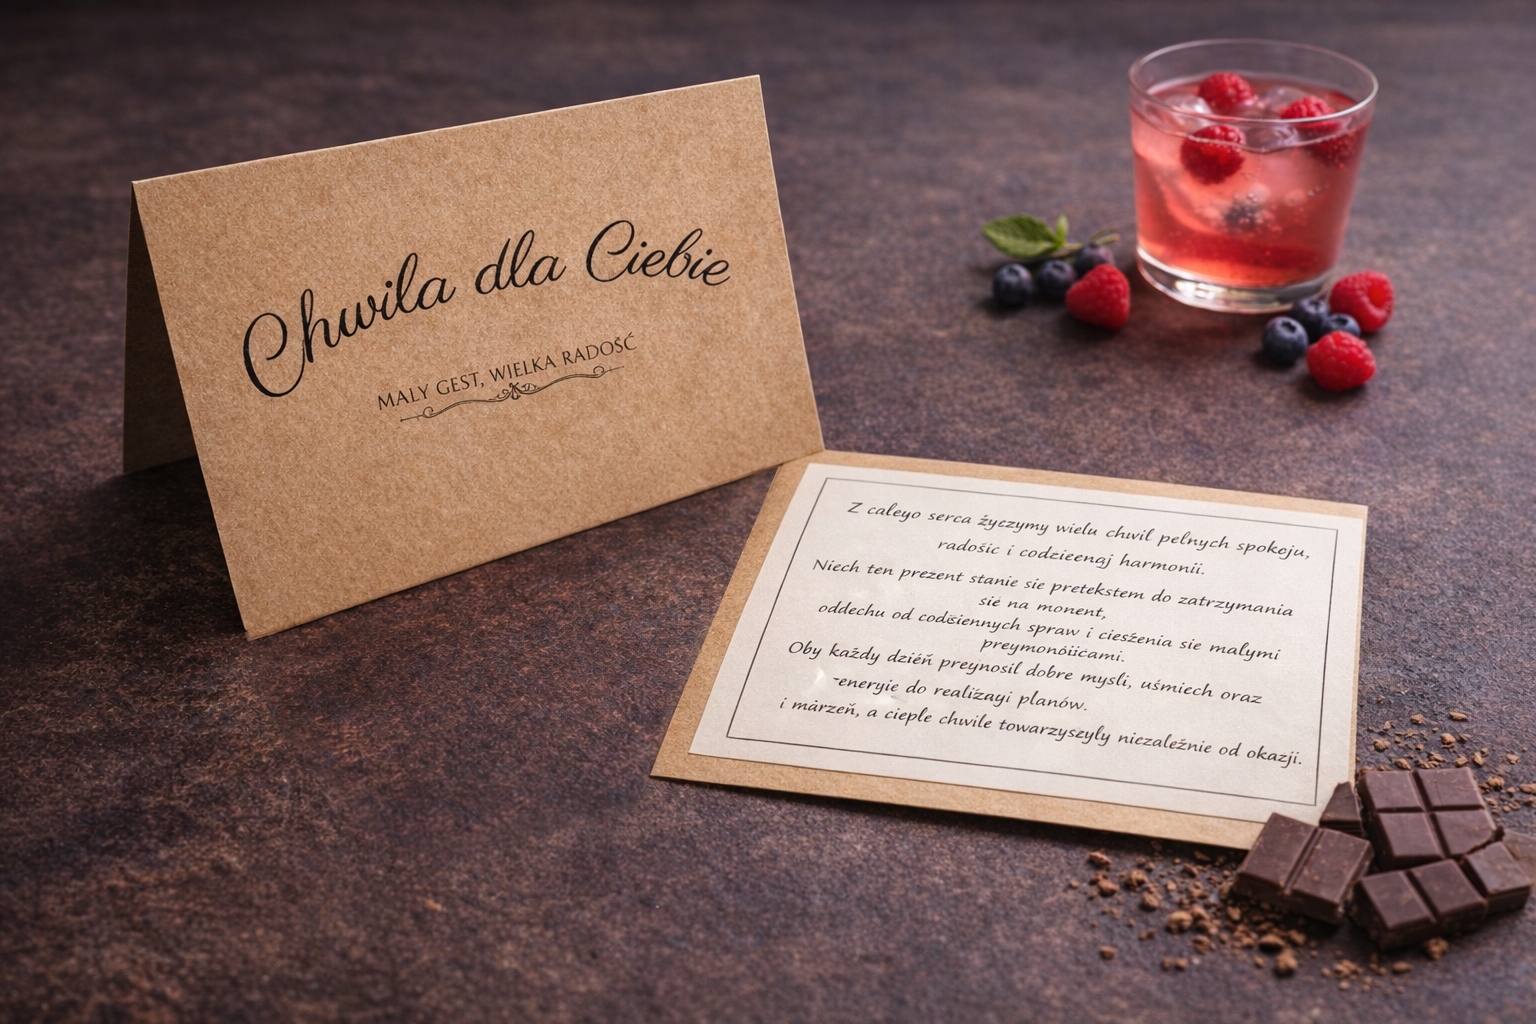 Chwila dla Ciebie
MALY GEST, WIELKA RADOŚĆ
Z całeyo serca życzymy wielu chwil pełnych spokoju,
radośic i codzieenąj harmonii.
Niech ten prezent stanie sie pretekstem do zatrzymania
sié na monent,
oddechu od codśiennych spraw i cieszenia sie małymi
preymonóiicami.
Oby każdy dzień preynosil dobre mysli, uśmiech oraz
-energyie do realiżayi planów.
i márzeń, a ciepłe chwile towarzyszyły niczaleźnie od okazji.